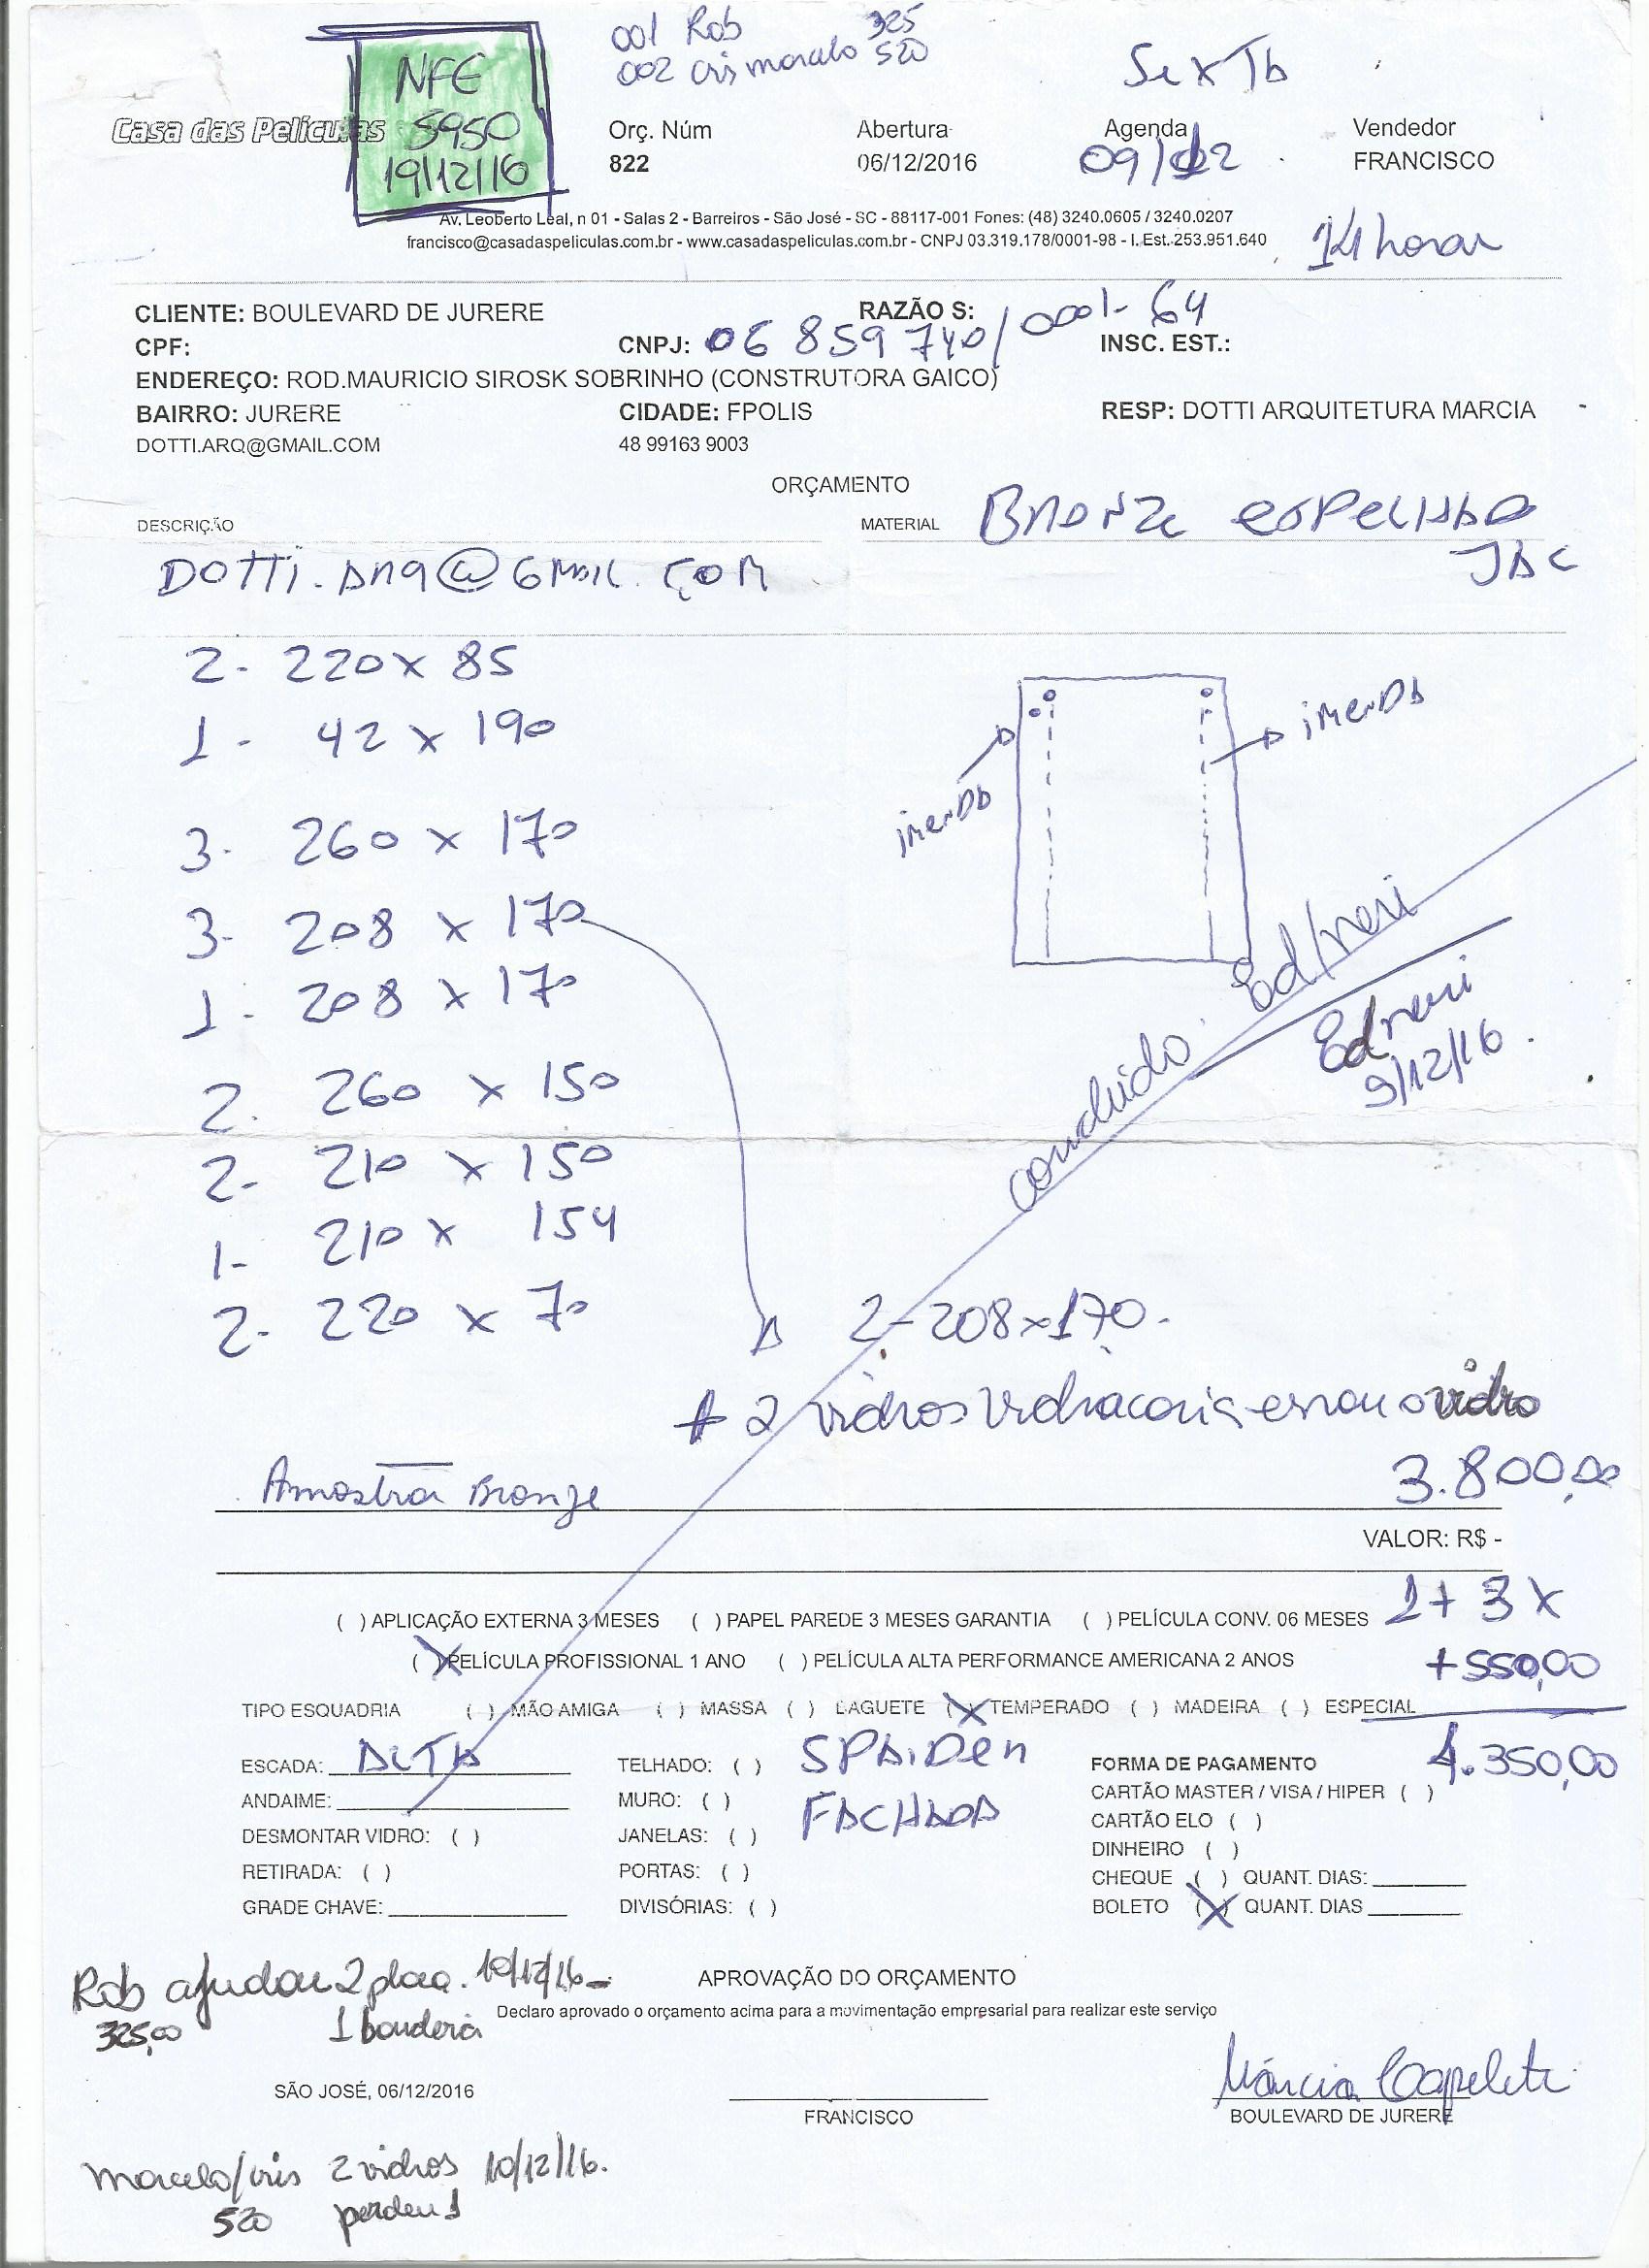 001 Rob 325
002 Cris marcelo 520
NFE
5950
19/12/16
Casa das Películas
Orç. Núm
822
Abertura
06/12/2016
Agenda
09/12
Vendedor
FRANCISCO
14 horas
Av. Leoberto Leal, n 01 - Salas 2 - Barreiros - São José - SC - 88117-001 Fones: (48) 3240.0605 / 3240.0207
francisco@casadaspeliculas.com.br - www.casadaspeliculas.com.br - CNPJ 03.319.178/0001-98 - I. Est. 253.951.640
CLIENTE: BOULEVARD DE JURERE RAZÃO S:
CPF: CNPJ: 06 859 740/0001-64 INSC. EST.:
ENDEREÇO: ROD.MAURICIO SIROSK SOBRINHO (CONSTRUTORA GAICO)
BAIRRO: JURERE CIDADE: FPOLIS RESP: DOTTI ARQUITETURA MARCIA
DOTTI.ARQ@GMAIL.COM 48 99163 9003
ORÇAMENTO
DESCRIÇÃO MATERIAL BRONZE ESPELHADO
DOTTI.ARQ@GMAIL.COM
2- 220 x 85
1- 42 x 190
3- 260 x 170
3- 208 x 170
1- 208 x 170
2- 260 x 150
2- 210 x 150
1- 210 x 154
2- 220 x 70
imenda
imenda
concluido Ed/neri
Ed neri
9/12/16.
2-208x170.
+ 2 vidros vidraçaria errou o vidro
Amostra Bronze
3.800,00
VALOR: R$ -
( ) APLICAÇÃO EXTERNA 3 MESES ( ) PAPEL PAREDE 3 MESES GARANTIA ( ) PELÍCULA CONV. 06 MESES 1+3x
(X) PELÍCULA PROFISSIONAL 1 ANO ( ) PELÍCULA ALTA PERFORMANCE AMERICANA 2 ANOS +550,00
TIPO ESQUADRIA ( ) MÃO AMIGA ( ) MASSA ( ) LAGUETE (X) TEMPERADO ( ) MADEIRA ( ) ESPECIAL
4.350,00
ESCADA: ALTA TELHADO: ( ) SPAIDER FORMA DE PAGAMENTO
ANDAIME: MURO: ( ) FACHADA CARTÃO MASTER / VISA / HIPER ( )
DESMONTAR VIDRO: ( ) JANELAS: ( ) CARTÃO ELO ( )
DINHEIRO ( )
RETIRADA: ( ) PORTAS: ( ) CHEQUE ( ) QUANT. DIAS:
GRADE CHAVE: DIVISÓRIAS: ( ) BOLETO (X) QUANT. DIAS
Rob ajudou 2 placa. 10/12/16
325,00 1 bandeira
APROVAÇÃO DO ORÇAMENTO
Declaro aprovado o orçamento acima para a movimentação empresarial para realizar este serviço
SÃO JOSÉ, 06/12/2016
FRANCISCO
Márcia Capeleti
BOULEVARD DE JURERE
Marcelo/cris 2 vidros 10/12/16.
520 perdeu 1